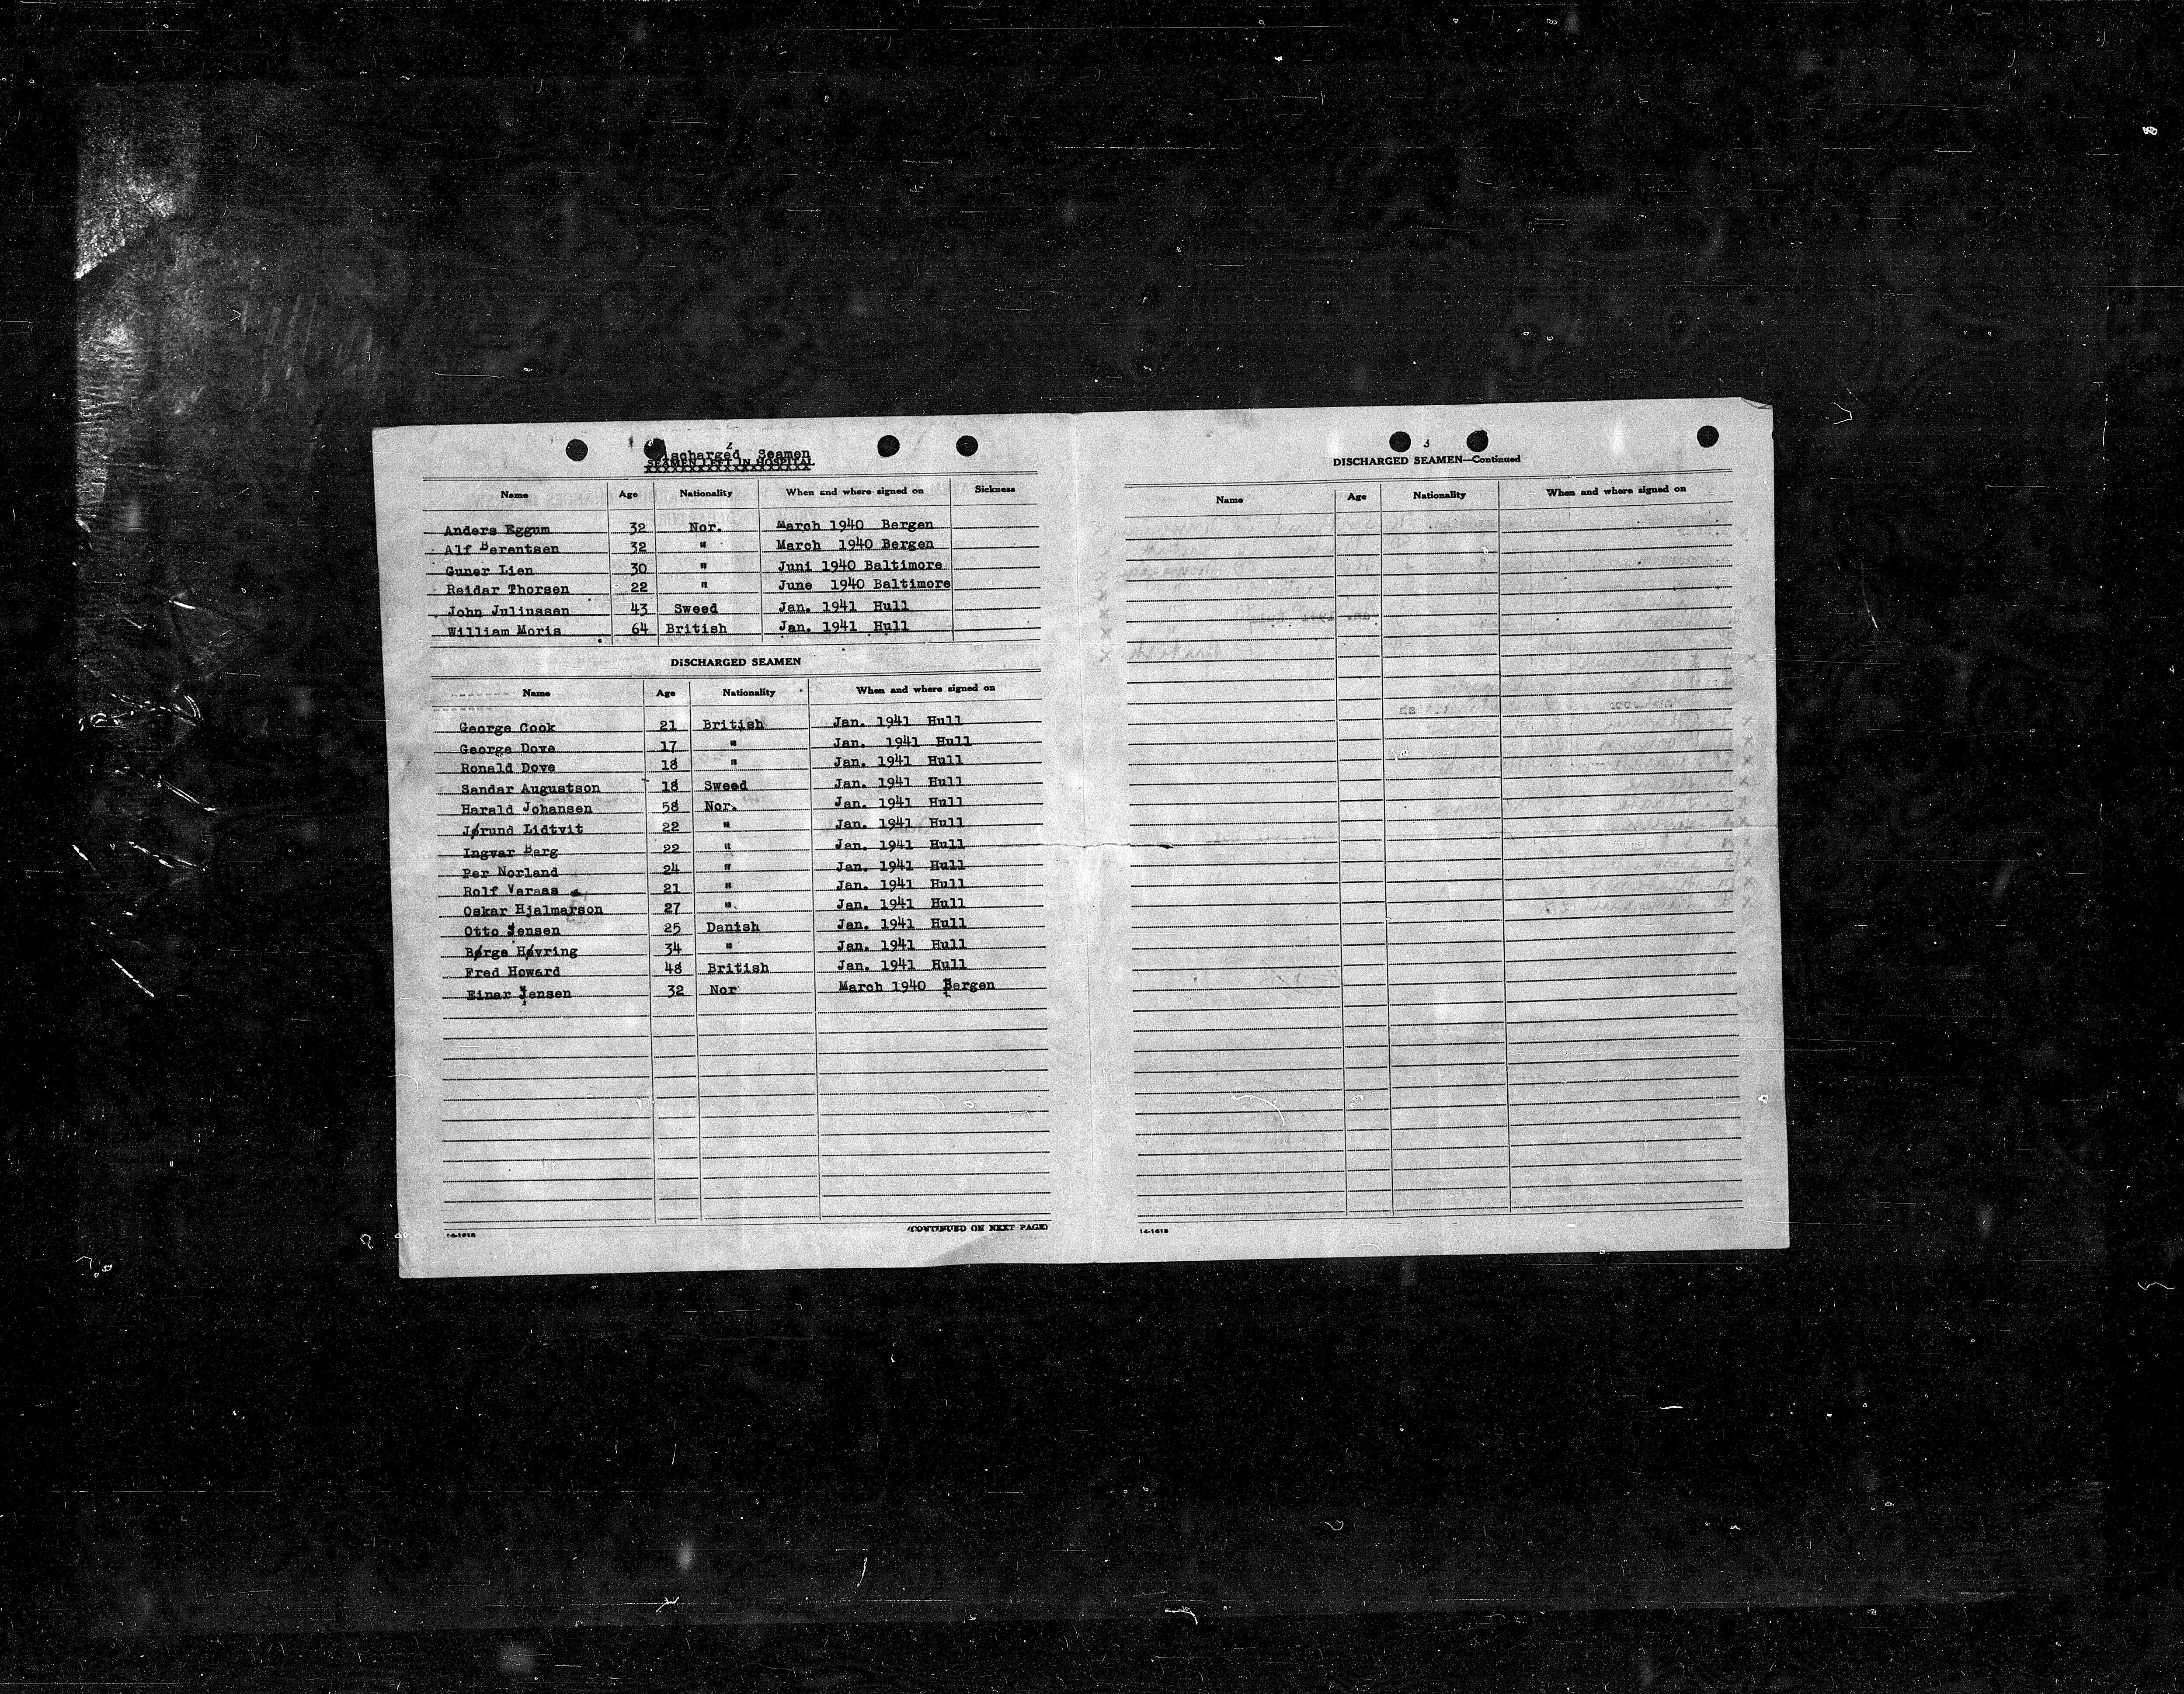 2
Discharged Seamen
SEAMEN LEFT IN HOSPITAL
Name Age Nationality When and where signed on Sickness
Anders Eggum 32 Nor. March 1940 Bergen
Alf Berentsen 32 " March 1940 Bergen
Guner Lien 30 " Juni 1940 Baltimore
Reidar Thorsen 22 " June 1940 Baltimore
John Juliussen 43 Sweed Jan. 1941 Hull
William Moris 64 British Jan. 1941 Hull
DISCHARGED SEAMEN
Name Age Nationality When and where signed on
George Cook 21 British Jan. 1941 Hull
George Dove 17 " Jan. 1941 Hull
Ronald Dove 18 " Jan. 1941 Hull
Sandar Augustson 18 Sweed Jan. 1941 Hull
Harald Johansen 58 Nor. Jan. 1941 Hull
Jørund Lidtvit 22 " Jan. 1941 Hull
Ingvar Berg 22 " Jan. 1941 Hull
Per Norland 24 " Jan. 1941 Hull
Rolf Veraas 21 " Jan. 1941 Hull
Oskar Hjalmarson 27 " Jan. 1941 Hull
Otto Jensen 25 Danish Jan. 1941 Hull
Børge Høvring 34 " Jan. 1941 Hull
Fred Howard 48 British Jan. 1941 Hull
Einar Jensen 32 Nor March 1940 Bergen
(CONTINUED ON NEXT PAGE)
14-1618
3
DISCHARGED SEAMEN—Continued
Name Age Nationality When and where signed on
14-1618